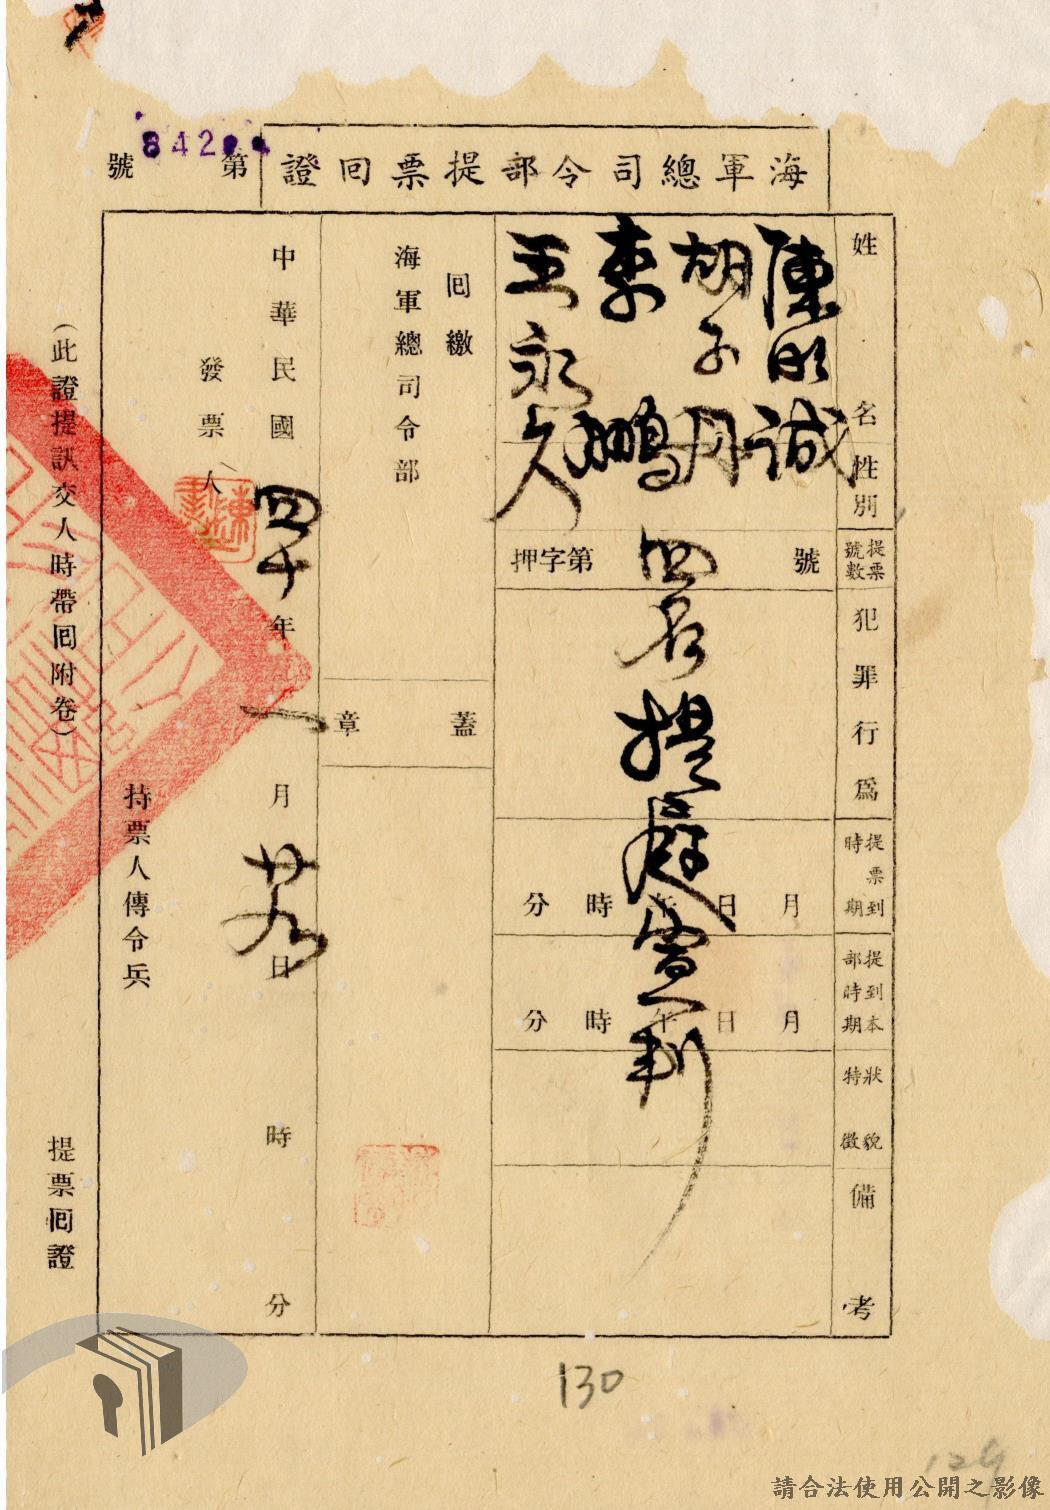 海軍總司令部提票回證
第842號
姓名
性別
提票號數
犯罪行為
提票到時期
提到本部時期
狀貌特徵
備考
陳明誠
胡子丹
李鵬
王永久
押字第號
四名提庭宣判
月日午時分
月日午時分
回繳
海軍總司令部
蓋章
中華民國四十年一月廿九日時分
發票人
持票人傳令兵
（此證提訊交人時帶回附卷）
提票回證
130
129
請合法使用公開之影像